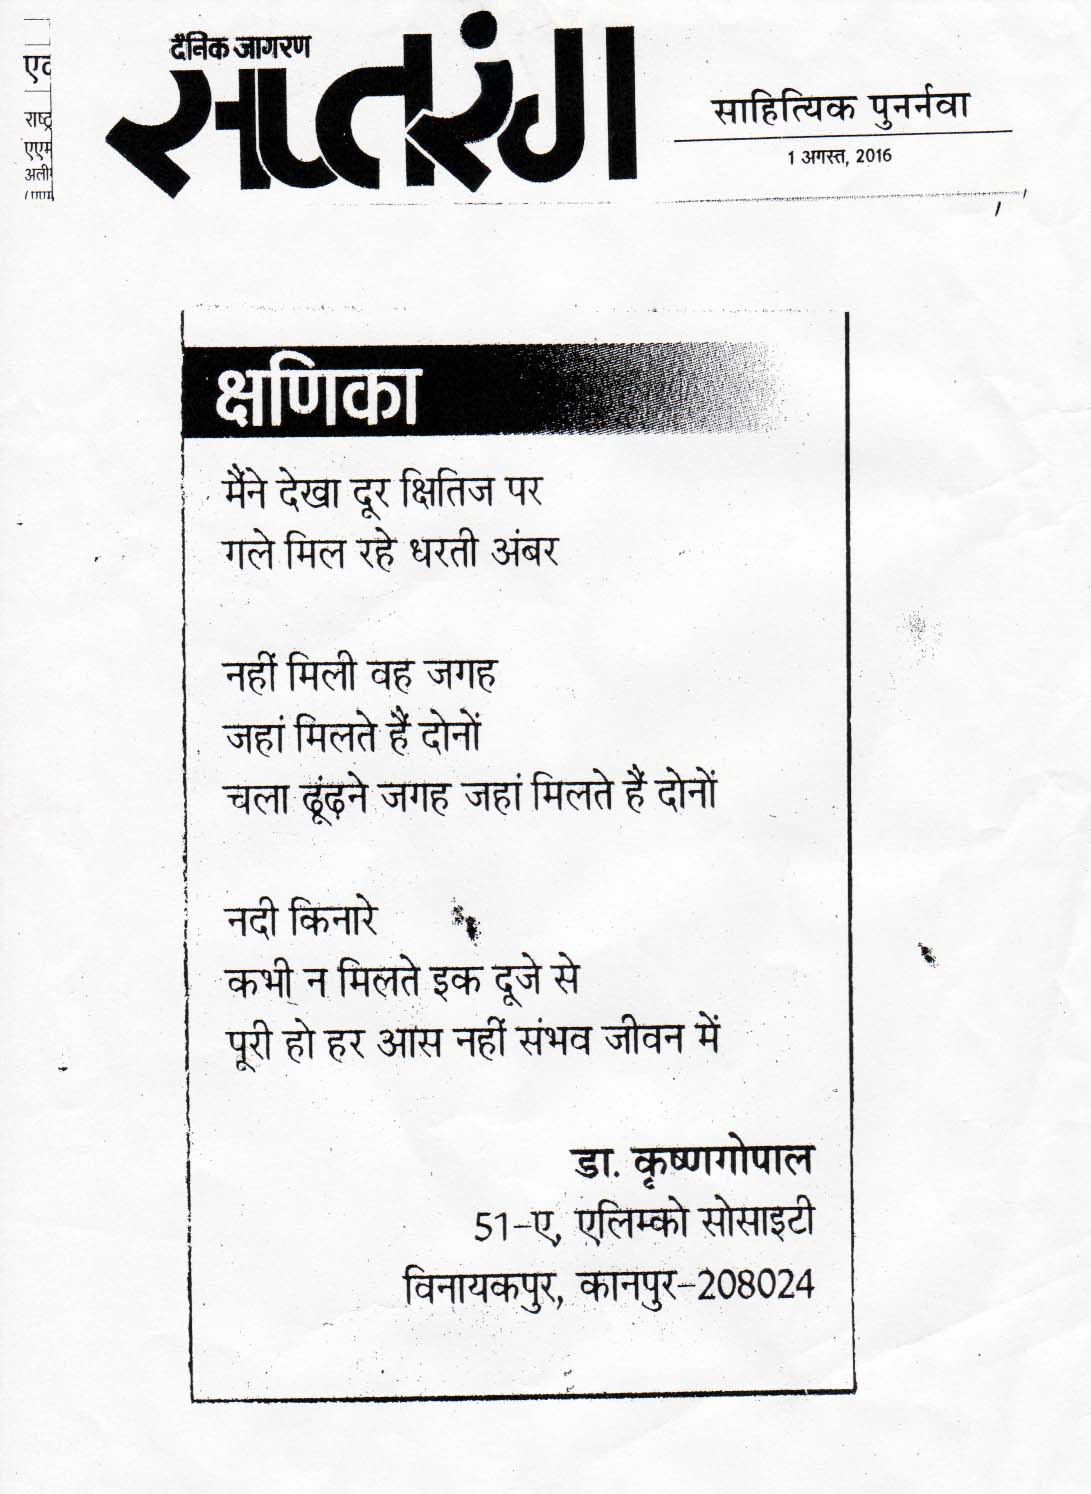 दैनिक जागरण
सप्तरंग
साहित्यिक पुनर्नवा
1 अगस्त, 2016
राष्ट्र
क्षणिका
मैंने देखा दूर क्षितिज पर
गले मिल रहे धरती अंबर
नहीं मिली वह जगह
जहां मिलते हैं दोनों
चला ढूंढ़ने जगह जहां मिलते हैं दोनों
नदी किनारे
कभी न मिलते इक दूजे से
पूरी हो हर आस नहीं संभव जीवन में
डा. कृष्णगोपाल
51-ए, एलिम्को सोसाइटी
विनायकपुर, कानपुर-208024